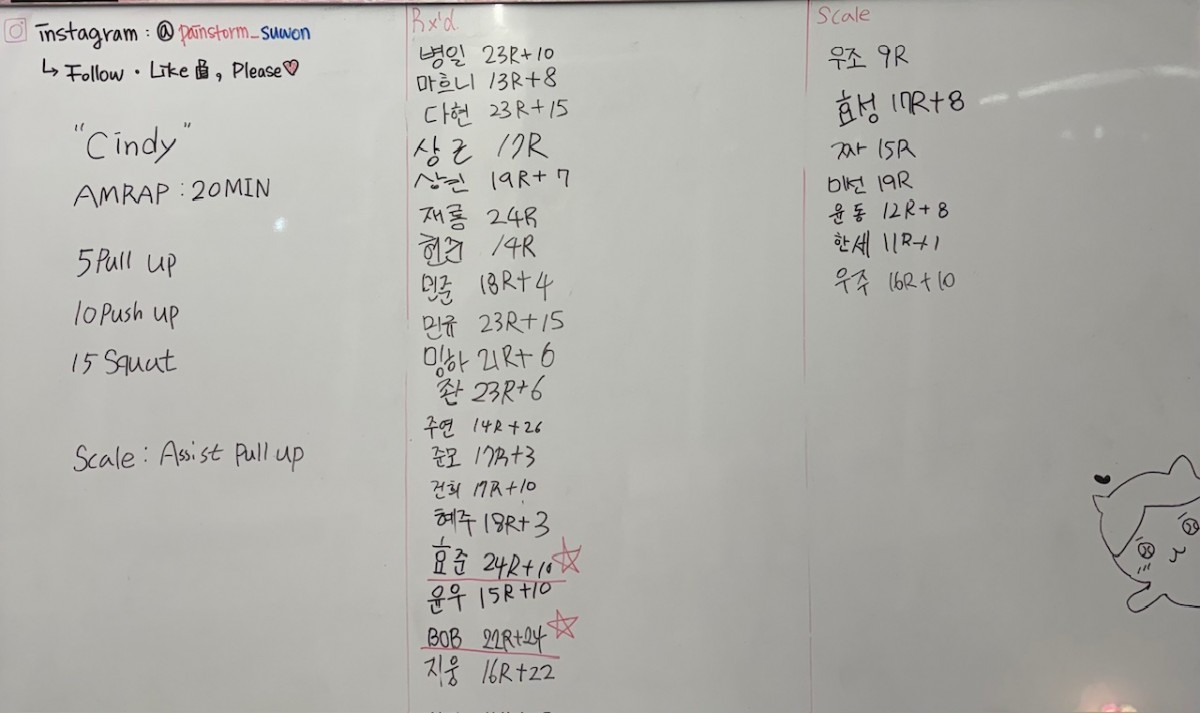 instagram : @painstorm_suwon
↳ Follow · Like 👍, Please♡
"Cindy"
AMRAP : 20MIN
5 Pull up
10 Push up
15 Squat
Scale : Assist Pull up
Rx'd
병일 23R+10
마흐니 13R+8
다현 23R+15
상근 17R
상현 19R+7
재롱 24R
현준 14R
민준 18R+4
민규 23R+15
밍하 21R+6
좐 23R+6
주연 14R+26
준모 17R+3
건희 17R+10
혜주 18R+3
효준 24R+10 ☆
윤우 15R+10
BOB 22R+24 ☆
지웅 16R+22
Scale
우조 9R
효성 17R+8
짜 15R
미선 19R
윤동 12R+8
한세 11R+1
우주 16R+10